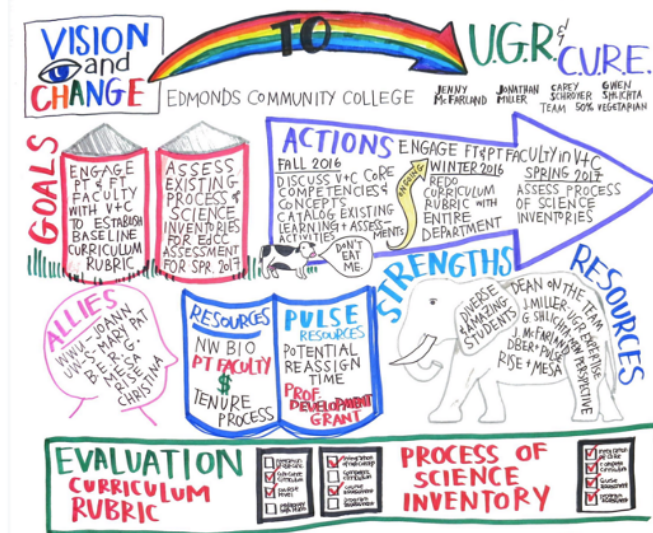 VISION
and
CHANGE
TO
U.G.R. &
C.U.R.E.
EDMONDS COMMUNITY COLLEGE
JENNY
McFARLAND
JONATHAN
MILLER
CAREY
SCHROYER
GWEN
SHLICHTA
TEAM 50% VEGETARIAN
GOALS
ENGAGE
PT & FT
FACULTY
WITH V+C
TO ESTABLISH
BASELINE
CURRICULUM
RUBRIC
ASSESS
EXISTING
PROCESS of
SCIENCE
INVENTORIES
FOR EdCC
ASSESSMENT
FOR SPR. 2017
ACTIONS
ENGAGE FT & PT FACULTY in V+C
FALL 2016
DISCUSS V+C CORE
COMPETENCIES &
CONCEPTS
CATALOG EXISTING
LEARNING + ASSESS-
MENTS
ACTIVITIES
ONGOING
WINTER 2016
REDO
CURRICULUM
RUBRIC WITH
ENTIRE
DEPARTMENT
SPRING 2017
ASSESS PROCESS
OF SCIENCE
INVENTORIES
DON'T
EAT
ME.
ALLIES
WWU - JOANN
UW-S - MARY PAT
B.E.R.G.
MESA
RISE
CHRISTINA
RESOURCES
NW BIO
PT FACULTY
$
TENURE
PROCESS
PULSE
RESOURCES
POTENTIAL
REASSIGN
TIME
PROF.
DEVELOPMENT
GRANT
STRENGTHS
DIVERSE
& AMAZING
STUDENTS
DEAN ON THE TEAM
J. MILLER - UGR EXPERTISE
G. SHLICHTA - NEW PERSPECTIVE
J. McFARLAND
DBER + PULSE
RISE + MESA
RESOURCES
EVALUATION
CURRICULUM
RUBRIC
PROCESS OF
SCIENCE
INVENTORY